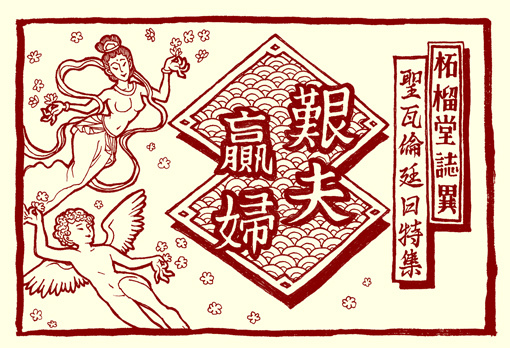 柘榴堂誌異
聖瓦倫廷日特集
艱夫
贏婦